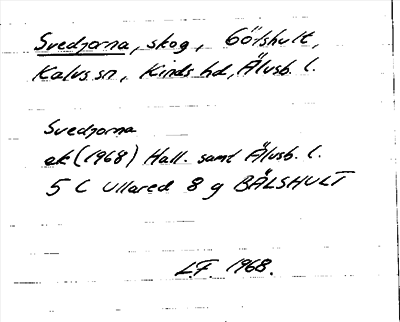 Svedjorna, skog, Gölshult,
Kalvs sn, Kinds hd, Älvsb. l.
Svedjorna
ek (1968) Hall. samt Älvsb. l.
5 C Ullared 8 g BÄLSHULT
L.F. 1968.